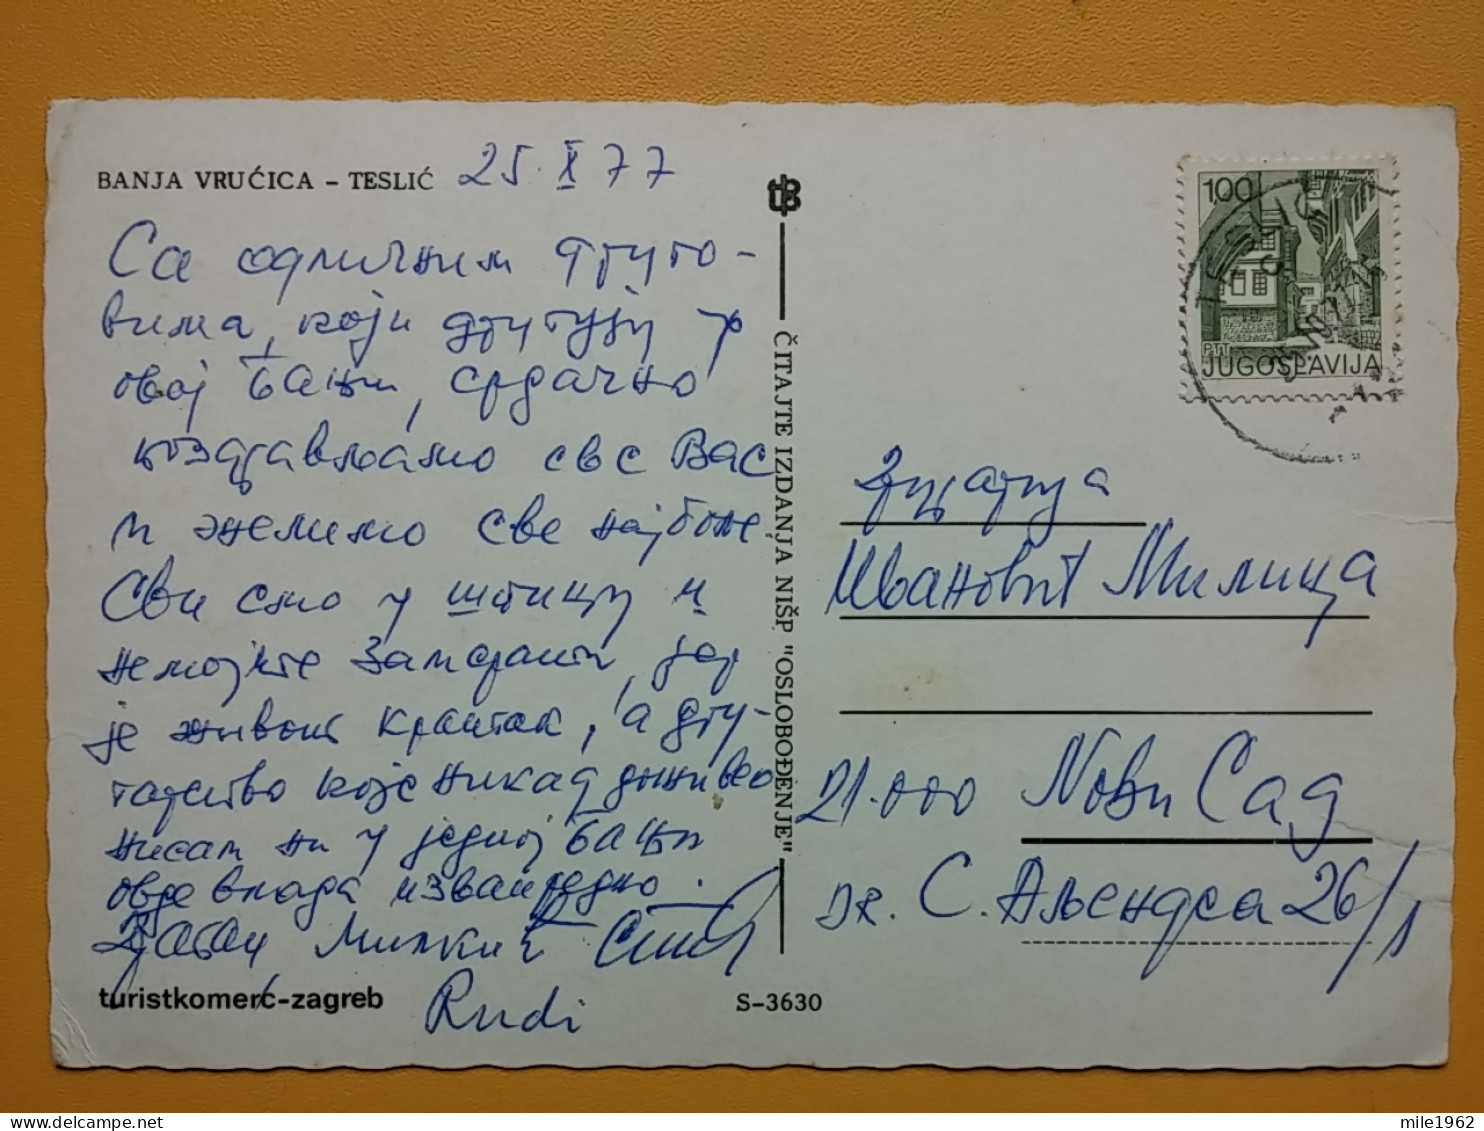 BANJA VRUĆICA - TESLIĆ 25. X 77
Са одличним другo-
вима, који другују у
овој бањи, срдачно
поздрављамо све Вас
и желимо све најбоље
Сви смо у штицу и
немојте замерити, јер
је живот кратак, а дру-
гарство које никад доживео
нисам ни у једној бањи
овде влада изванредно.
Драган Милкић
Rudi
turistkomerc-zagreb
S-3630
ČITAJTE IZDANJA NIŠP "OSLOBOĐENJE"
100
PTT
JUGOSLAVIJA
Другарица
Ивановић Милица
21.000 Нови Сад
др. С. Аљендеа 26/1
mile1962